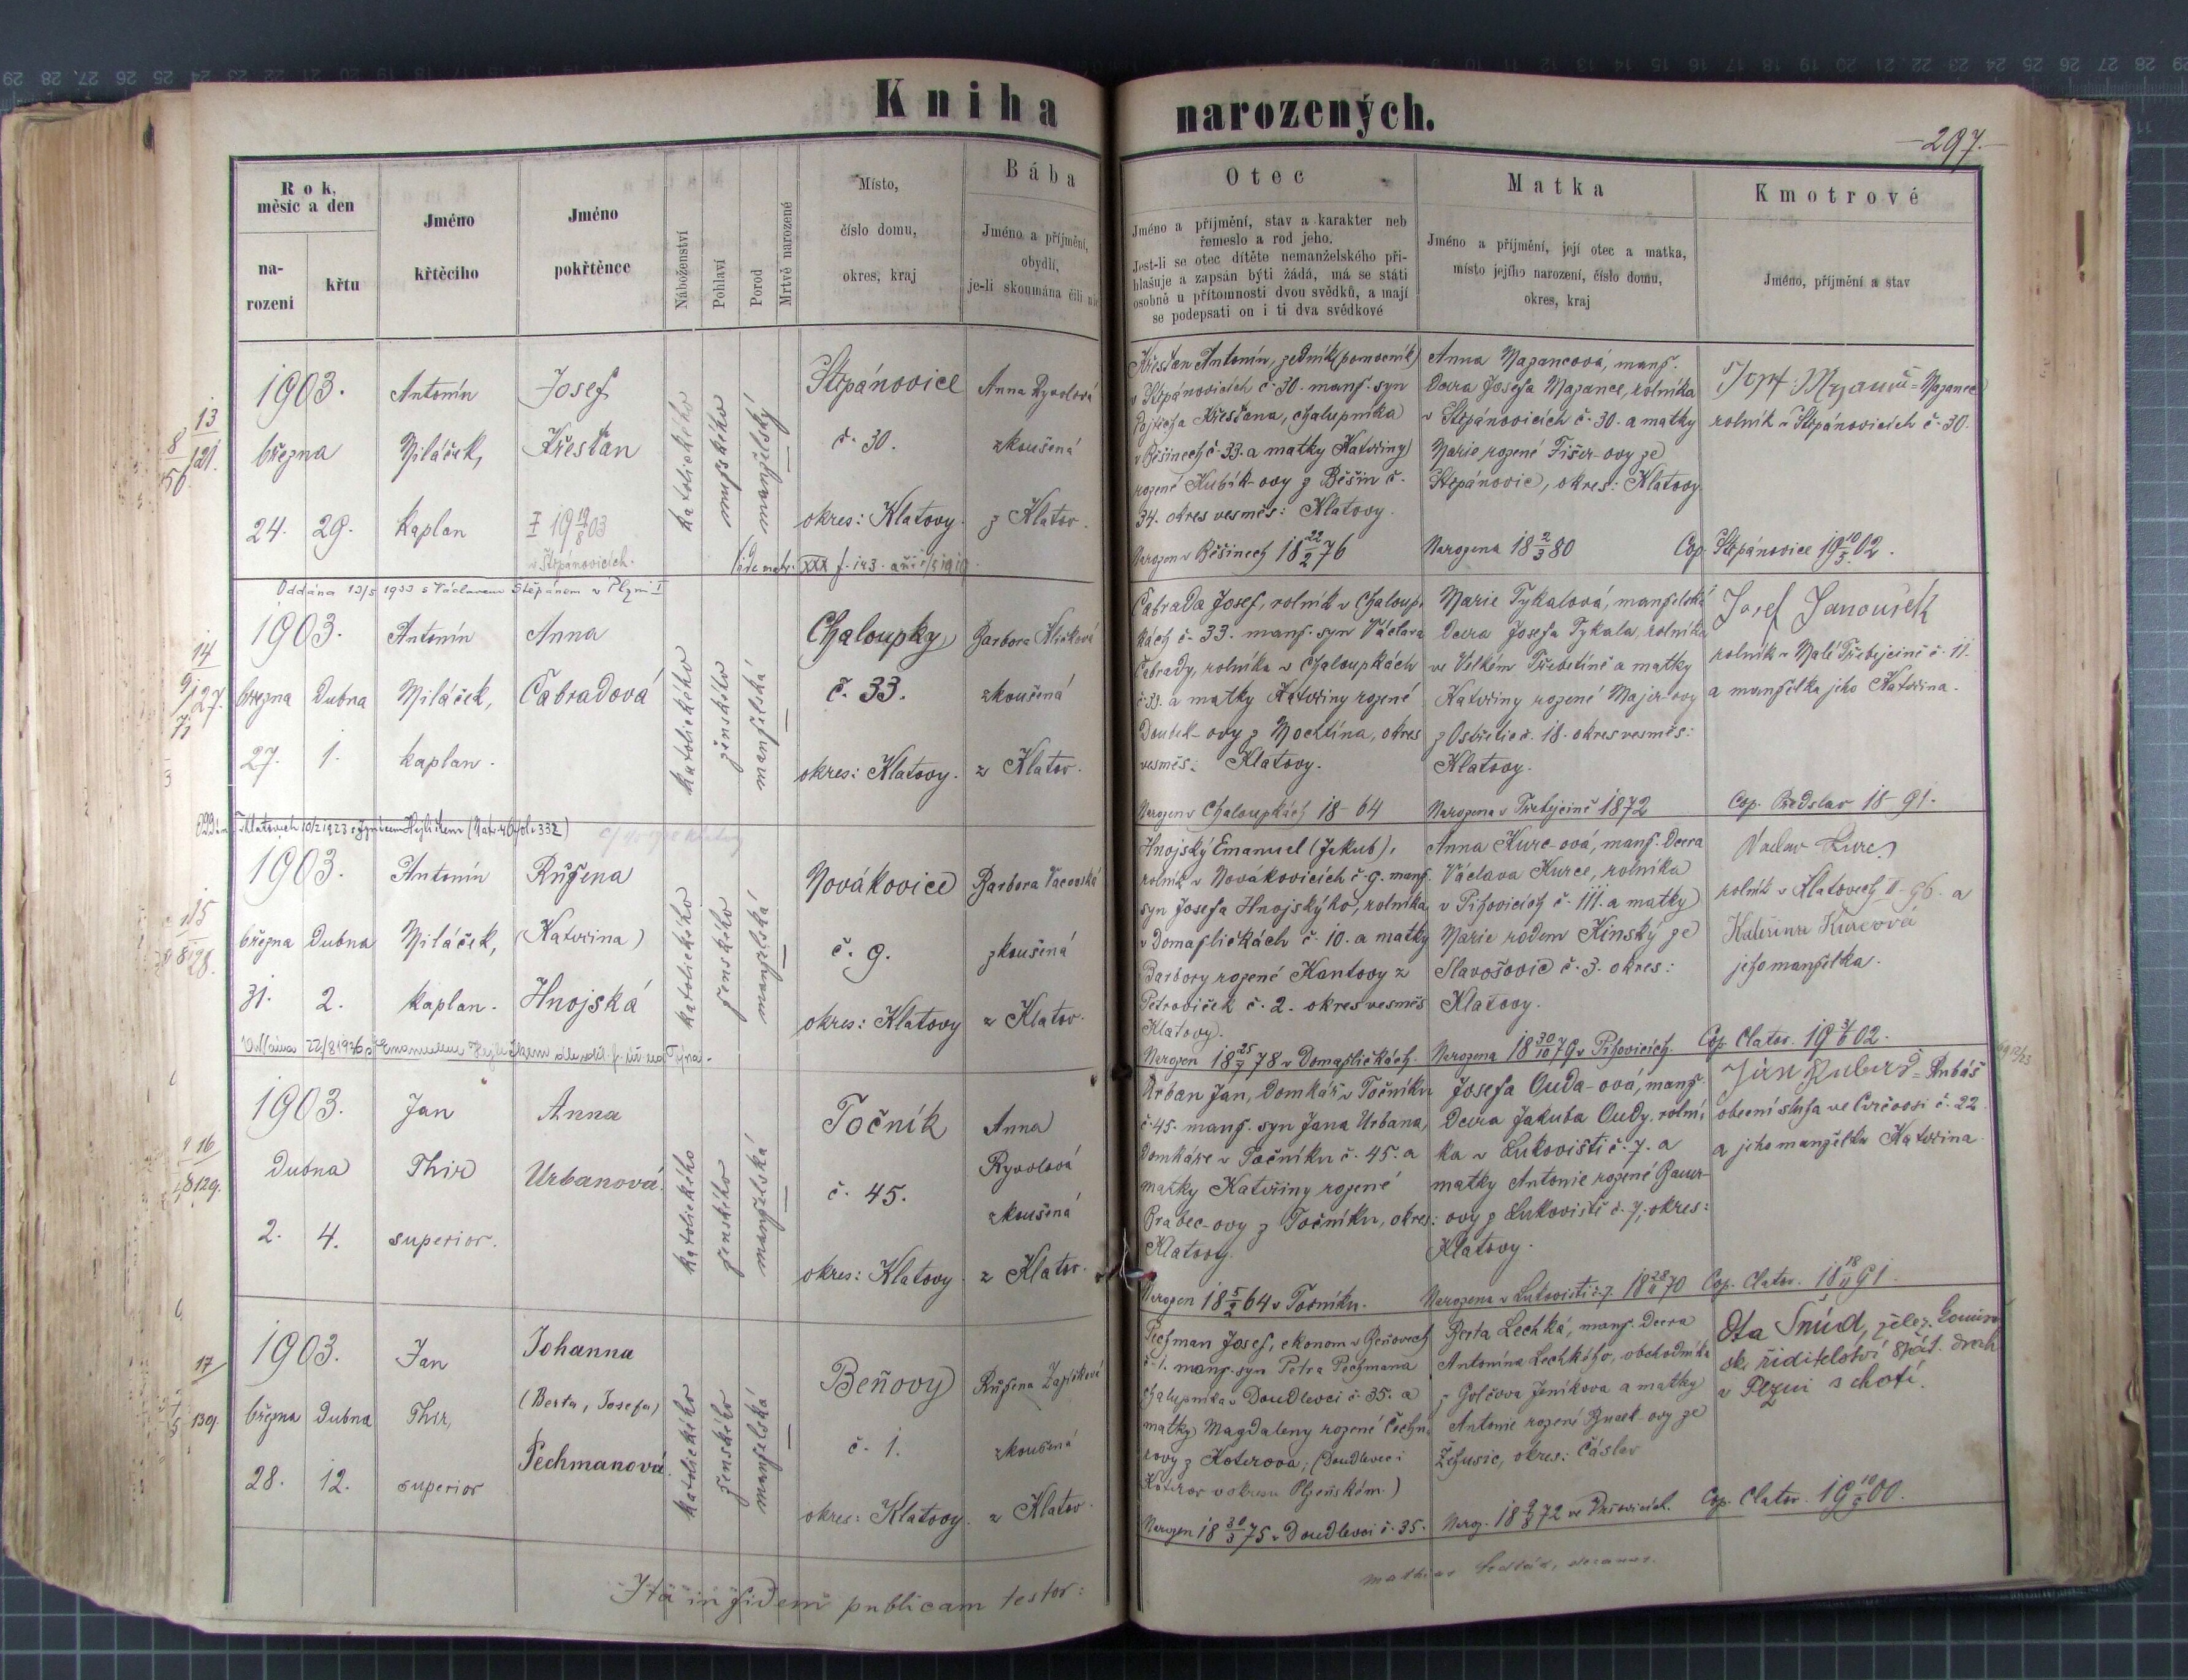 Kniha narozených.
297.
Rok, měsíc a den
na-
rozeni
křtu
Jméno
křtěcího
Jméno
pokřtěnce
Náboženství
Pohlaví
Porod
Mrtvě narozené
Místo,
číslo domu,
okres, kraj
Bába
Jméno a příjmění,
obydlí,
je-li skoumána čili nic
Otec
Jméno a příjmění, stav a karakter neb
řemeslo a rod jeho.
Jest-li se otec dítěte nemanželského při-
hlašuje a zapsán býti žádá, má se státi
osobně u přítomnosti dvou svědků, a mají
se podepsati on i ti dva svědkové
Matka
Jméno a příjmění, její otec a matka,
místo jejího narození, číslo domu,
okres, kraj
Kmotrové
Jméno, příjmění a stav
13
121.
1903.
března
24. 29.
Antonín
Miláček,
kaplan
Josef
Křesťan
katolického
mužského
manželský
Štěpánovice
č. 30.
okres: Klatovy.
Anna Ryvolová
zkoušená
z Klatov.
Křesťan Antonín, zedník (pomocník)
v Štěpánovicích č. 30. manž. syn
Josefa Křesťana, chalupníka
v Běšinech č. 33. a matky Kateřiny
rozené Kubík-ovy z Běšin č.
34. okres vesměs: Klatovy.
Narozen v Běšinech 18 22/2 76
Anna Mazancová, manž.
dcera Josefa Mazance, rolníka
v Štěpánovicích č. 30. a matky
Marie rozené Fišer-ovy ze
Štěpánovic, okres: Klatovy.
Narozena 18 2/3 80
Mazanec
rolník v Štěpánovicích č. 30.
Cop. Štěpánovice 19 10/5 02.
Oddána 13/5 1933 s Václavem Štěpánem v Plzni I
14
127.
1903.
března dubna
27. 1.
Antonín
Miláček,
kaplan.
Anna
Čabradová
katolického
ženského
manželská
Chaloupky
č. 33.
okres: Klatovy.
Barbora
zkoušená
z Klatov.
Čabrada Josef, rolník v Chaloup-
kách č. 33. manž. syn Václava
Čabrady, rolníka v Chaloupkách
č. 33. a matky Kateřiny rozené
Doubek-ovy z Mochtína, okres
vesměs: Klatovy.
Narozen v Chaloupkách 18 64
Marie Tykalová, manželská
dcera Josefa Tykala, rolníka
ve Velkém Třebetíně a matky
Kateřiny rozené Majer-ovy
z Ostřetic č. 18. okres vesměs:
Klatovy.
Narozena v Třebýcině 1872
Josef Janoušek
rolník v Malé Třebýcině č. 11.
a manželka jeho Kateřina.
Cop. Předslav 18 91.
15
128.
1903.
března dubna
31. 2.
Antonín
Miláček,
kaplan.
Růžena
(Kateřina)
Hnojská
katolického
ženského
manželská
Novákovice
č. 9.
okres: Klatovy
Barbora Vacovská
zkoušená
z Klatov.
Hnojský Emanuel (Jakub),
rolník v Novákovicích č. 9. manž.
syn Josefa Hnojského, rolníka
v Domažličkách č. 10. a matky
Barbory rozené Kantovy z
Petroviček č. 2. okres vesměs
Klatovy.
Narozen 18 78 v Domažličkách.
Anna Kurc-ová, manž. dcera
Václava Kurce, rolníka
v Pihovicích č. III. a matky
Marie rodem Kinský ze
Slavošovic č. 3. okres:
Klatovy.
Narozena 18 30/10 79 v Pihovicích.
Václav Kurc
rolník v Klatovech II 96. a
Kateřina Kurcová
jeho manželka.
Cop. Clatov. 19 02.
16
129.
1903.
Dubna
2. 4.
Jan
Thir
superior.
Anna
Urbanová.
katolického
ženského
manželská
Točník
č. 45.
okres: Klatovy.
Anna
Ryvolová
zkoušená
z Klatov.
Urban Jan, domkář v Točníku
č. 45. manž. syn Jana Urbana,
domkáře v Točníku č. 45. a
matky Kateřiny rozené
Brabec-ovy z Točníku, okres:
Klatovy.
Narozen 18 5/2 64 v Točníku.
Josefa Ouda-ová, manž.
dcera Jakuba Oudy, rolní-
ka v Lukovišti č. 7. a
matky Antonie rozené Bauer-
ovy z Lukovišť č. 7, okres:
Klatovy.
Narozena v Lukovišti č. 7. 18 70
obecní sluha ve Cvrčovsi č. 22
a jeho manželka Kateřina.
Cop. Clatov. 18 18/11 91.
17
139.
1903.
března dubna
28. 12.
Jan
Thir,
superior
Johanna
(Berta, Josefa)
Pechmanová.
katolického
ženského
manželská
Beňovy
č. 1.
okres: Klatovy.
Růžena
zkoušená
z Klatov.
Pechman Josef, ekonom v Beňovech
č. 1. manž. syn Petra Pechmana
chalupníka v Doudlevci č. 35. a
matky Magdaleny rozené
z Koterova; (Doudlevec i
Koterov v okresu Plzeňském.)
Narozen 18 30/3 75 v Doudlevci č. 35.
Berta Lechká, manž. dcera
Antonína Lechkého, obchodníka
z Golčova Jeníkova a matky
Antonie rozené
Žehusic, okres: Čáslav
Naroz. 18 72
Ota Šmíd,
ředitelství stát. drah
v Plzni s chotí.
Cop. Clatov. 19 00.
Ita in fidem publicam testor: